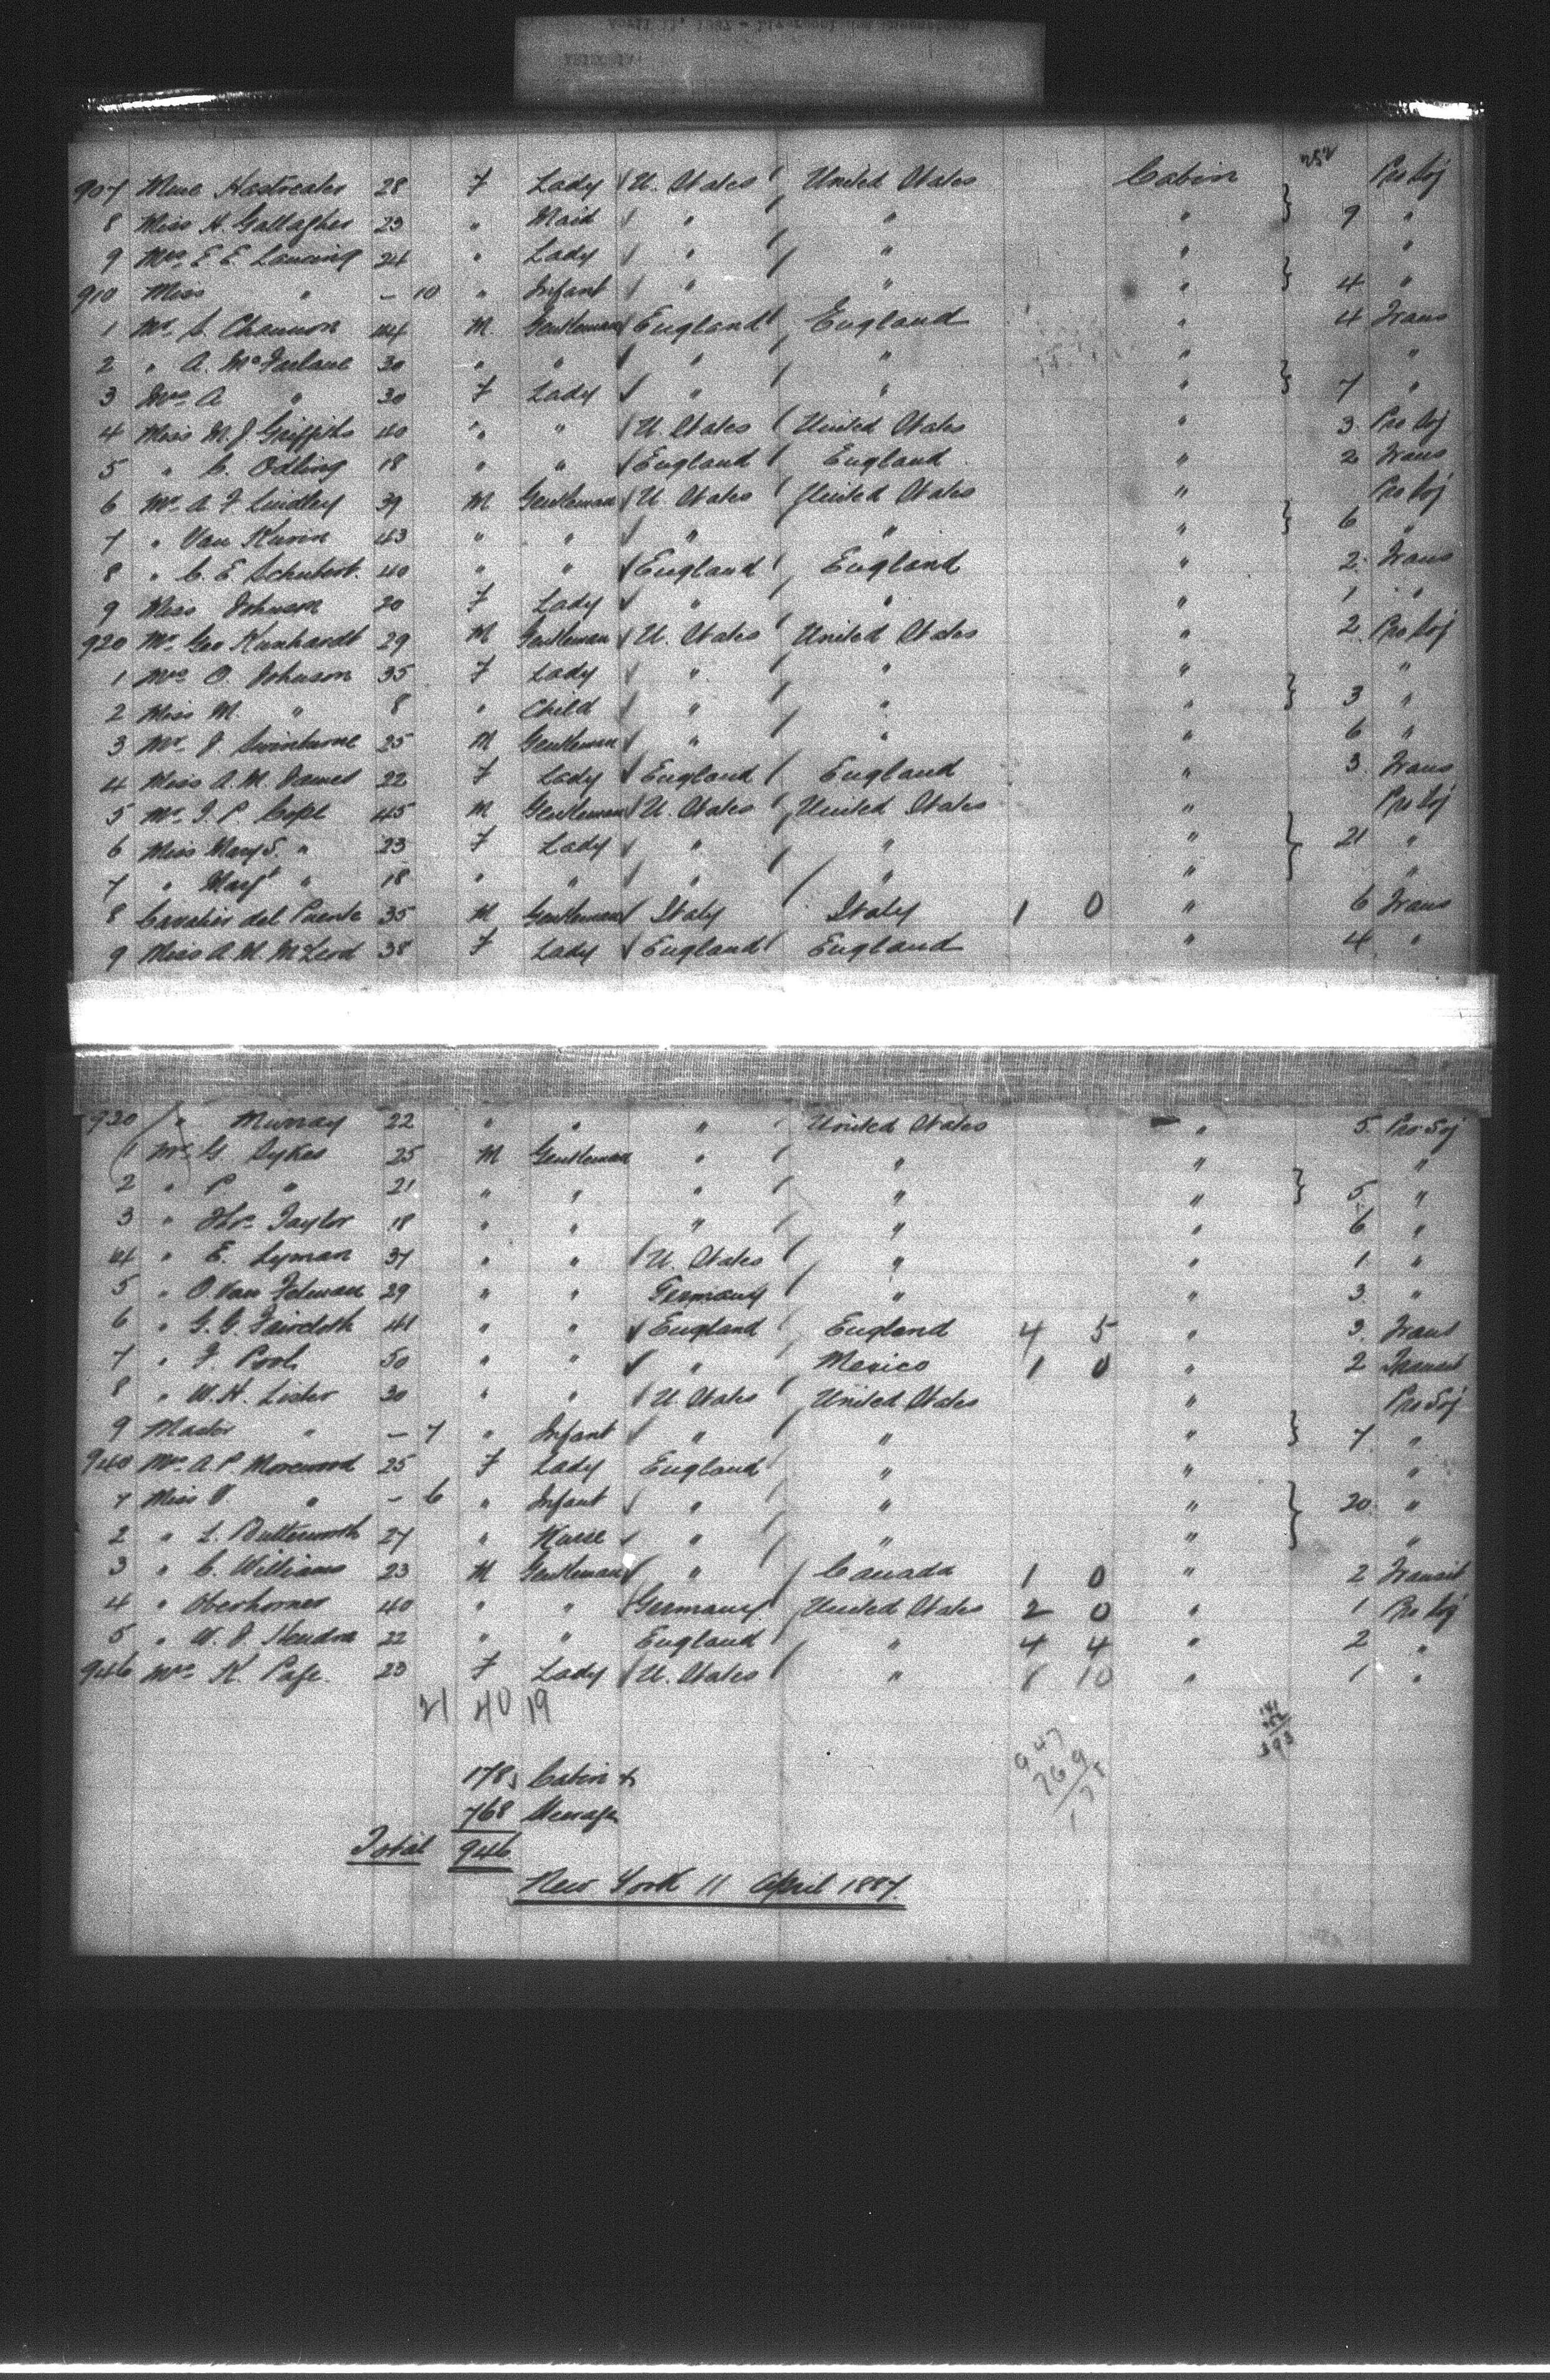 April 11, 1887 - Liverpool and Queenstown
252
907 Mme Hastreater 28 F Lady U. States United States Cabin Pro Soj
8 Miss H. Gallagher 23 " Maid " " " 9 "
9 Mrs E E. Lansing 24 " Lady " " " "
910 Miss " - 10 " Infant " " " 4 "
1 Mr C. Channon 44 M Gentleman England England " 4 Trans
2 " A. McFarlane 30 " " " " " "
3 Mrs A " 30 F Lady " " " 7 "
4 Miss M. J Griffiths 40 " " U. States United States " 3 Pro Soj
5 " C. Odling 18 " " England England " 2 Trans
6 Mr A. F Lindley 39 M Gentleman U. States United States " Pro Soj
7 " Van Kuren 43 " " " " " 6 "
8 " C. E Schubert. 40 " " England England " 2 Trans
9 Miss Johnson 20 F Lady " " " 1 "
920 Mr Geo Kunhardt 29 M Gentleman U. States United States " 2 Pro Soj
1 Mrs O. Johnson 35 F Lady " " " "
2 Miss M. " 8 " Child " " " 3 "
3 Mr J Swinburne 25 M Gentleman " " " 6 "
4 Miss A. M. James 22 F Lady England England " 3 Trans
5 Mr J. P Cope 45 M Gentleman U. States United States " Pro Soj
6 Miss Mary S. " 23 F Lady " " " 21 "
7 " Margt " 18 " " " " " "
8 Cavalier del Puente 35 M Gentleman Italy Italy 1 0 " 6 Trans
9 Miss A. M. McLeod 38 F Lady England England " 4 "
930 " Murray 22 " " " United States " 5 Pro Soj
1 Mr G. Sykes 25 M Gentleman " " " "
2 " P " 21 " " " " " 5 "
3 " Thos Taylor 18 " " " " " 6 "
4 " E. Lyman 37 " " U. States " " 1 "
5 " O. Van 29 " " Germany " " 3 "
6 " G. G. Faircloth 41 " " England England 4 5 " 3 Trans
7 " F. Pool 50 " " " Mexico 1 0 " 2 Transit
8 " W. H. Lister 30 " " U. States United States " Pro Soj
9 Master " - 7 " Infant " " " 7 "
940 Mrs A. P. Morewood 25 F Lady England " " "
1 Miss V " - 6 " Infant " " " 20 "
2 " L. Butterworth 27 " Nurse " " " "
3 " C. Williams 23 M Gentleman " Canada 1 0 " 2 Transit
4 " Oberhorner 40 " " Germany United States 2 0 " 1 Pro Soj
5 " W. J Hendra 22 " " England " 4 4 " 2 "
946 Mrs K. Page. 23 F Lady U. States " 8 10 " 1 "
21 40 19
178 Cabin
768 Steerage
Total 946
New York 11 April 1887
947
769
178
141
252
393